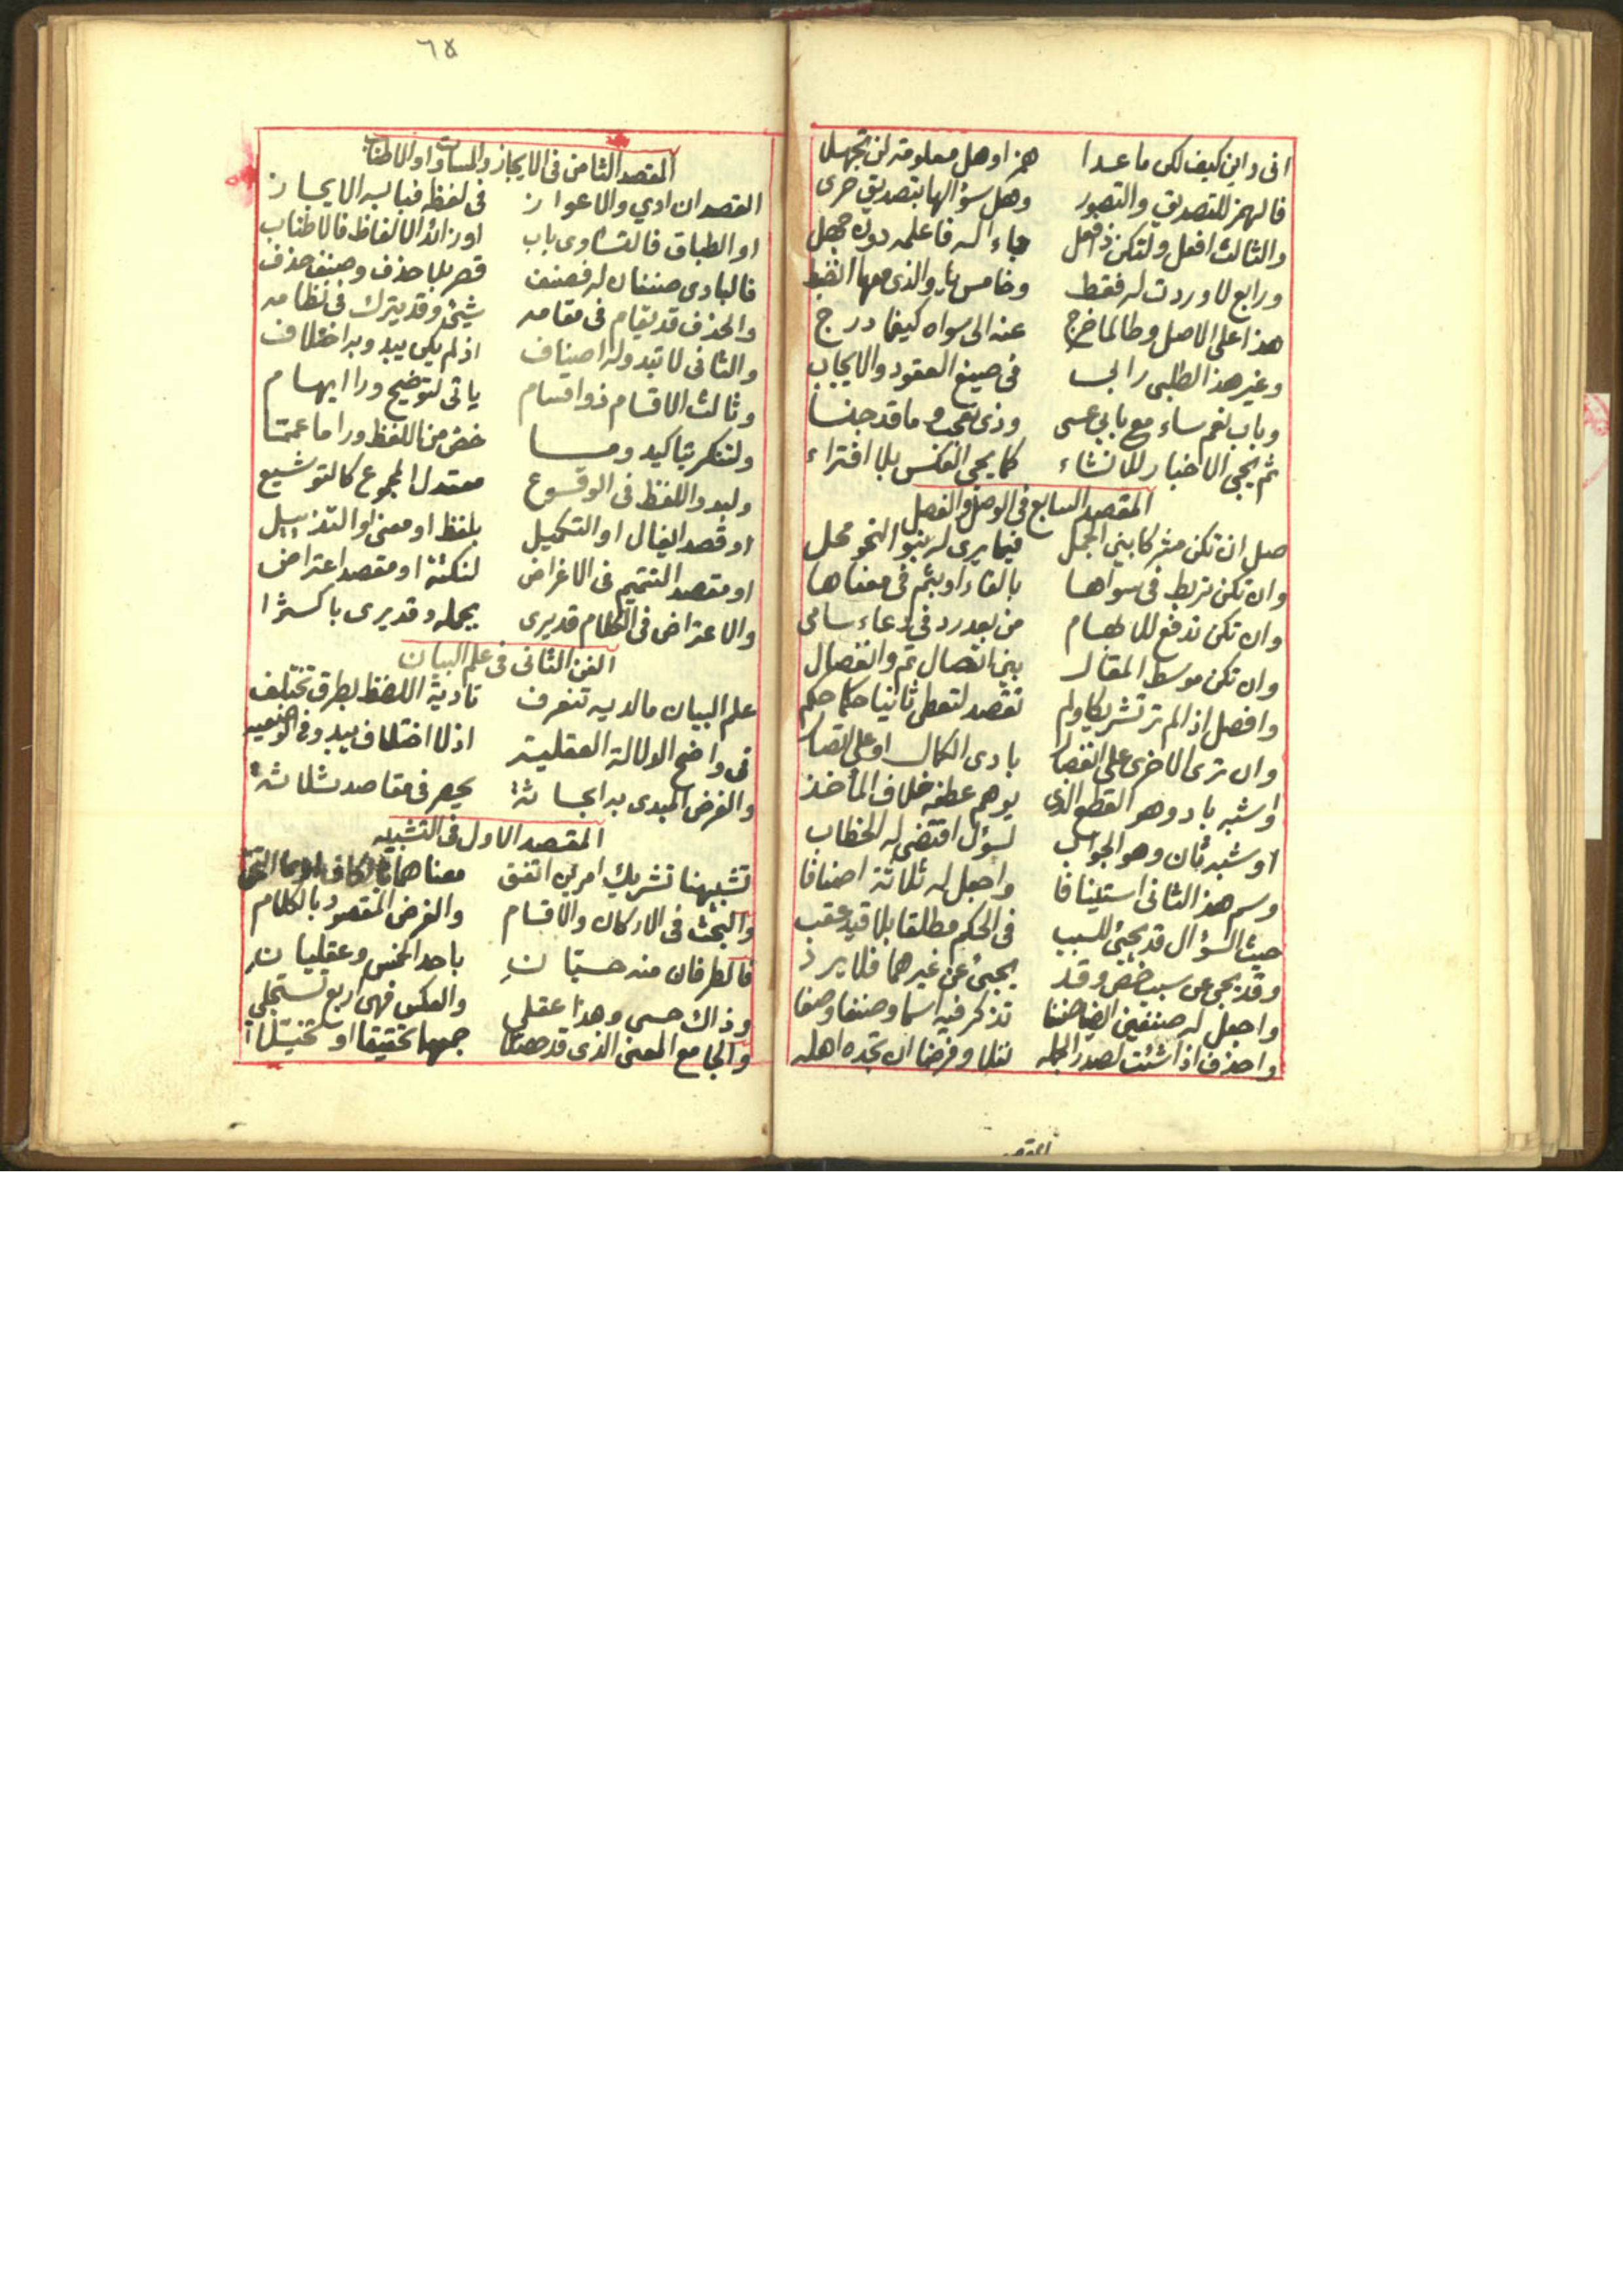 انى واين كيف لكى ما عدا همز او هل معلومة لن تجهلا
فالهمز للتصديق والتصور وهل سؤالها بتصديق حرى
والثالث افعل ولتكن ذا فعل جاء له فاعلمه دون جهل
ورابع لا وردت له فقط وخامس يا والذى معها انضبط
هذا على الاصل وطالما خرج عنه الى سواه كيفما درج
وغير هذا الطلبى رابى فى صيغ العقود والايجاب
وباب نعم ساء مع بابى عسى وذى تعجب وما قد جنسا
ثم يجى الاخبار للانشاء كما يجى العكس بلا افتراء
المقصد السابع فى الوصل والفصل
صل ان تكن مشركا بين الجمل فيما يرى له بنوا النحو محل
وان تكن تربط فى سواها بالفاء او بثم فى معناها
وان تكن تدفع للابهام من بعد رد فى دعاء سامى
وان تكن موسط المقال بين اتصال تم وانفصال
وافصل اذا لم تر تشريكا ولم تقصد لتعطى ثانيا حكما حكم
وان ترى الاخرى على انفصال بادى الكمال او على اتصال
او شبه باد وهو القطع الذى يوهم عطفه خلاف المأخذ
او شبه ثان وهو الجواب لسؤل اقتضى له الخطاب
وسم هذا الثانى استينافا واجعل له ثلاثة اصنافا
حيث السؤال قد يجئ للسبب فى الحكم مطلقا بلا قيد عقب
وقد يجى عن سبب خص وقد يجئ عن غيرهما فلا يرد
واجعل له صنفين ايضا صنفا تذكر فيه اسما وصنفا وصفا
واحذف اذا شئت لصدر الجمله نقلا وفرضا ان تجده اهله
المقصد
٦٥
المقصد الثامن فى الايجاز والمساواة والاطناب
القصد ان ادي والاعواز فى لفظه فبابه الايجاز
او الطباق فالتساوى باب او زائد الالفاظ فالاطناب
فالبادى صنفان له فصنف قصر بلا حذف وصنف حذف
والحذف قد يقام فى مقامه شيئ وقد يترك فى نظامه
والثانى لا تبدو له اصناف اذ لم يكن يبدو به اختلاف
وثالث الاقسام ذو اقسام ياتى لتوضيح ورا ايهام
ولتكر بتاكيد وما خص من اللفظ ورا ما عمما
وليد واللفظ فى الوقوع معتدل المجموع كالتوشيع
او قصد ايغال او التكميل بلفظ او معنى او التذييل
او مقصد التتميم فى الاغراض لنكتة او مقصد اعتراض
والاعتراض فى الكلام قد يرى بجمله وقد يرى باكثرا
الفن الثانى فى علم البيان
علم البيان ما لديه تنعرف تادية اللفظ بطرق تختلف
فى واضح الدلالة العقليه اذ لا اختلاف يبدو فى الوضعيه
والغرض المبدى به ابحاثه يحصر فى مقاصد ثلاثه
المقصد الاول فى التشبيه
تشبيهنا تشريك امرين اتفق معناهما بالكاف
والبحث فى الاركان والاقسام والغرض المقصود بالكلام
فالطرفان منه حسيان باحد الخمس وعقليان
وذاك حسى وهذا عقلى والعكس فهى اربع تستجلى
والجامع المعنى الذى قد حصلا جمها تحقيقا او تخيلا